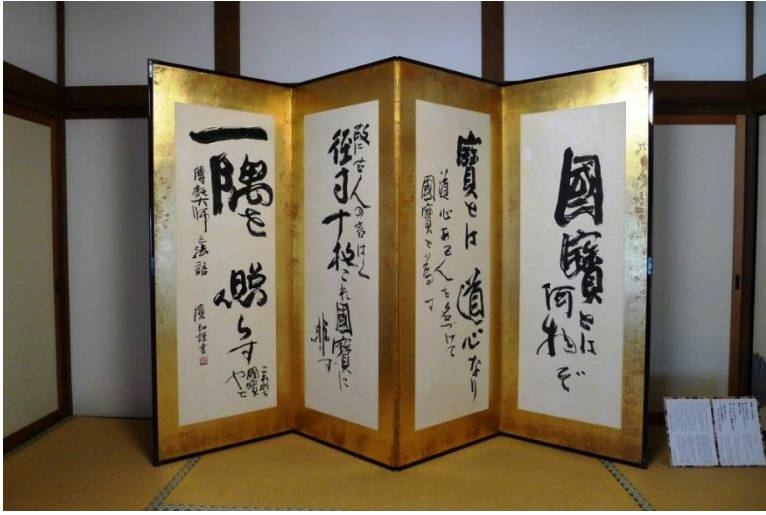 國寶とは
何物ぞ
寶とは道心なり
道心ある人を名づけて
國寶と為す
故に古人の言はく
径寸十枚これ國寶に
非ず
一隅を照らす
國寶
傳教大師之法語
謹書